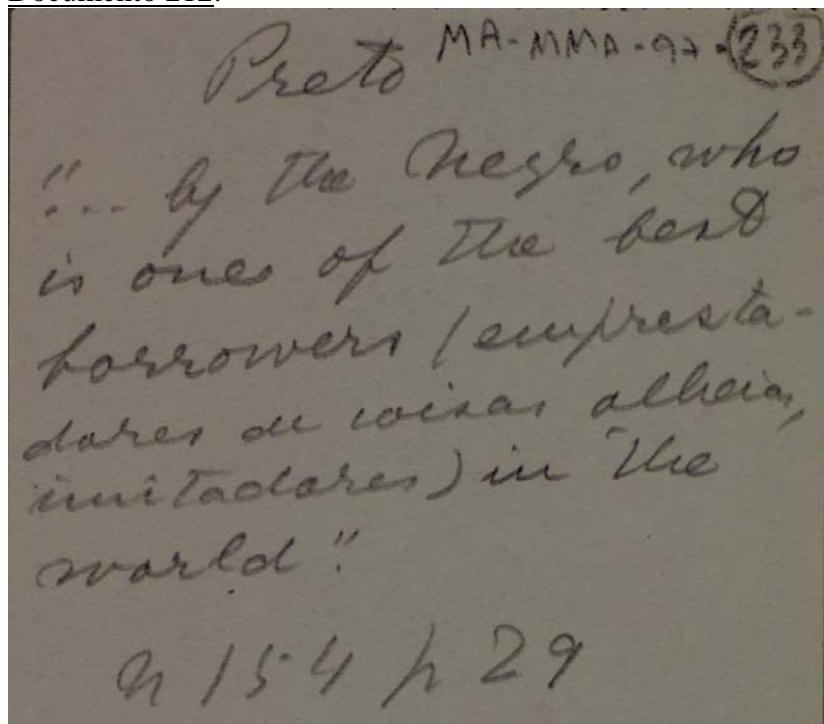 Documento 212:
Preto MA-MMA-97-233
"... by the Negro, who
is one of the best
borrowers (empresta-
dores de coisas alheias,
imitadores) in the
world"
n 154 p 29